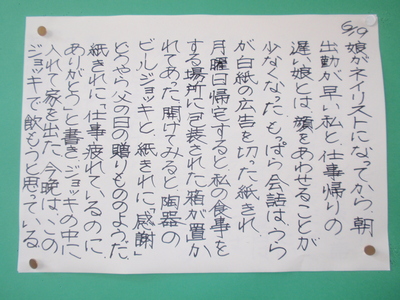 6/29
娘がネイリストになってから、朝
出勤が早い私と、仕事帰りの
遅い娘とは、顔をあわせることが
少なくなった。もっぱら会話は、うら
が白紙の広告を切った紙きれ、
月曜日帰宅すると私の食事を
する場所に包装された箱が置か
れてあった。開けてみると、陶器の
ビールジョッキと、紙きれに「感謝」
どうやら父の日の贈りもののようだ。
紙きれに「仕事疲れているのに、
ありがとう」と書き、ジョッキの中に
入れて家を出た。今晩は、この
ジョッキで飲もうと思っている